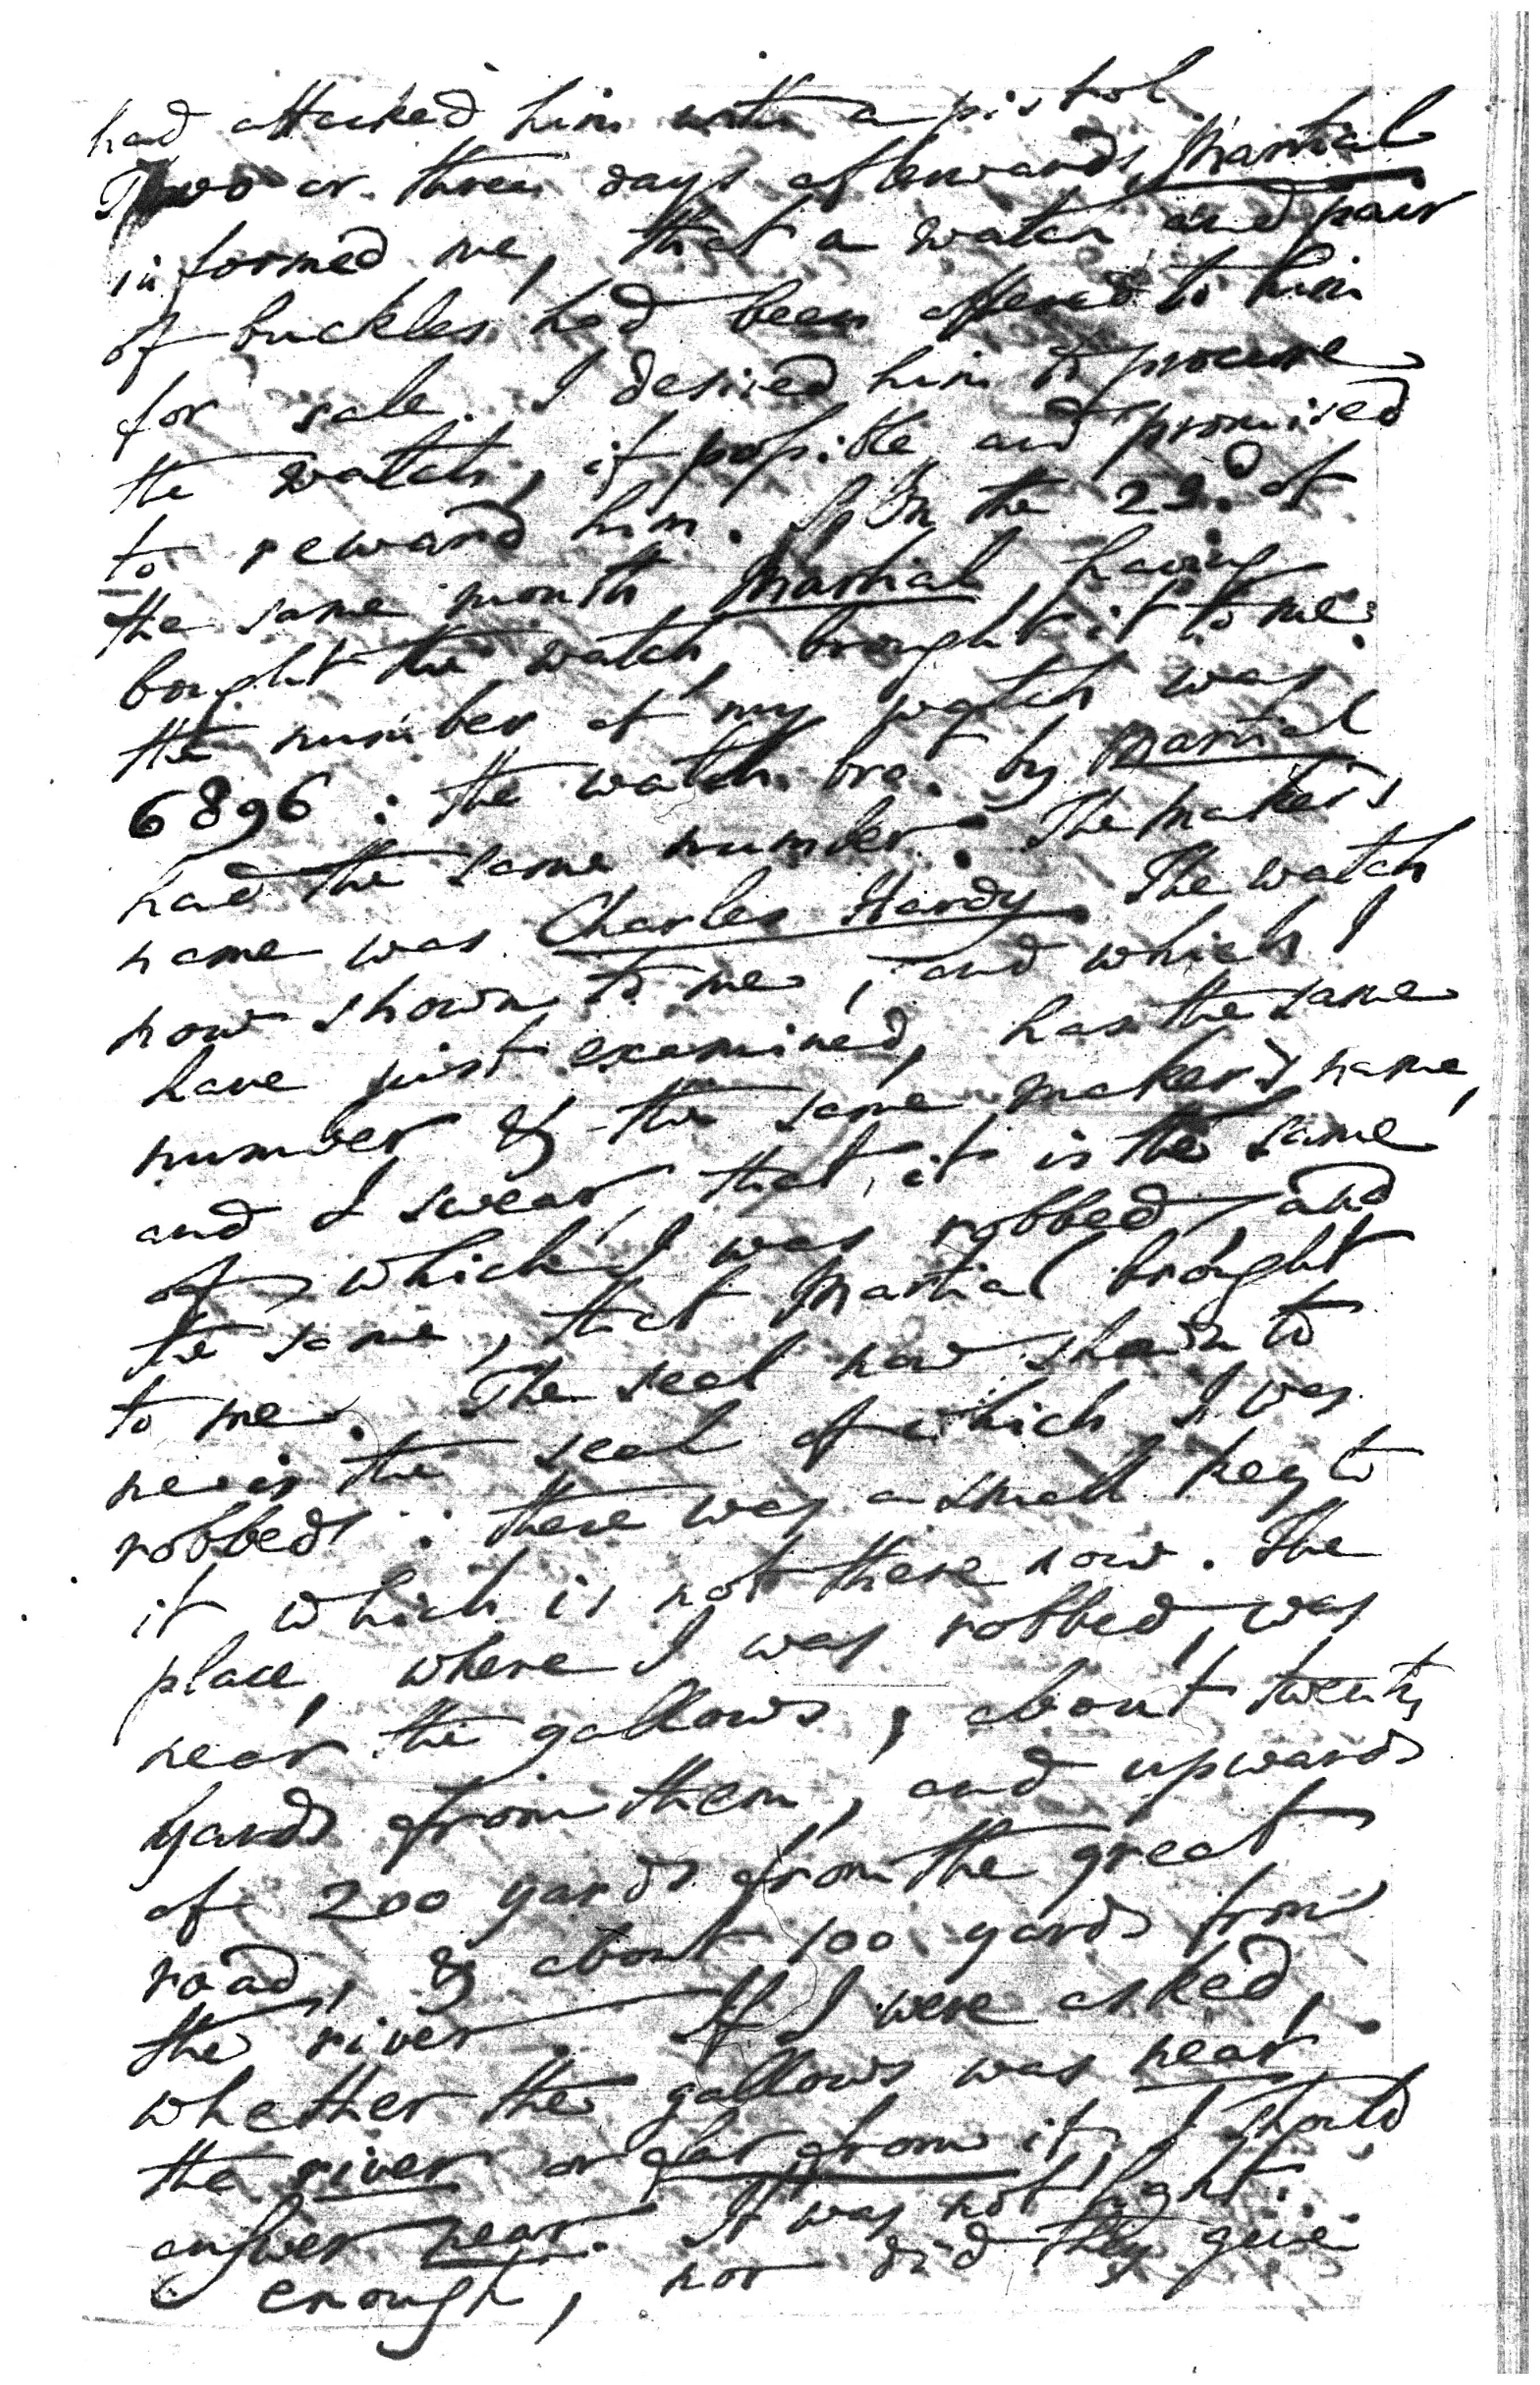 had attacked him with a pistol
Two or three days afterwards, Martial
informed me, that a watch and pair
of buckles had been offered to him
for sale. I desired him to procure
the watch, if possible and promised
to reward him. On the 23d. of
the same month Martial, having
bought the watch, brought it to me.
the number of my watch was
6896 : the watch bro. by Martial
had the same number. The maker's
name was Charles Hardy. The watch
now shown to me, and which I
have just examined, has the same
number & the same maker's name,
and I swear, that it is the same
of which I was robbed, and
the same, that Martial brought
to me. The seal now shown to
me is the seal of which I was
robbed : there was a small key to
it which is not there now. The
place, where I was robbed, was
near the gallows, about twenty
yards from them, and upwards
of 200 yards from the great
road, & about 100 yards from
the river. If I were asked,
whether the gallows was near
the river or far from it, I should
answer near. It was not light
enough, nor did they give